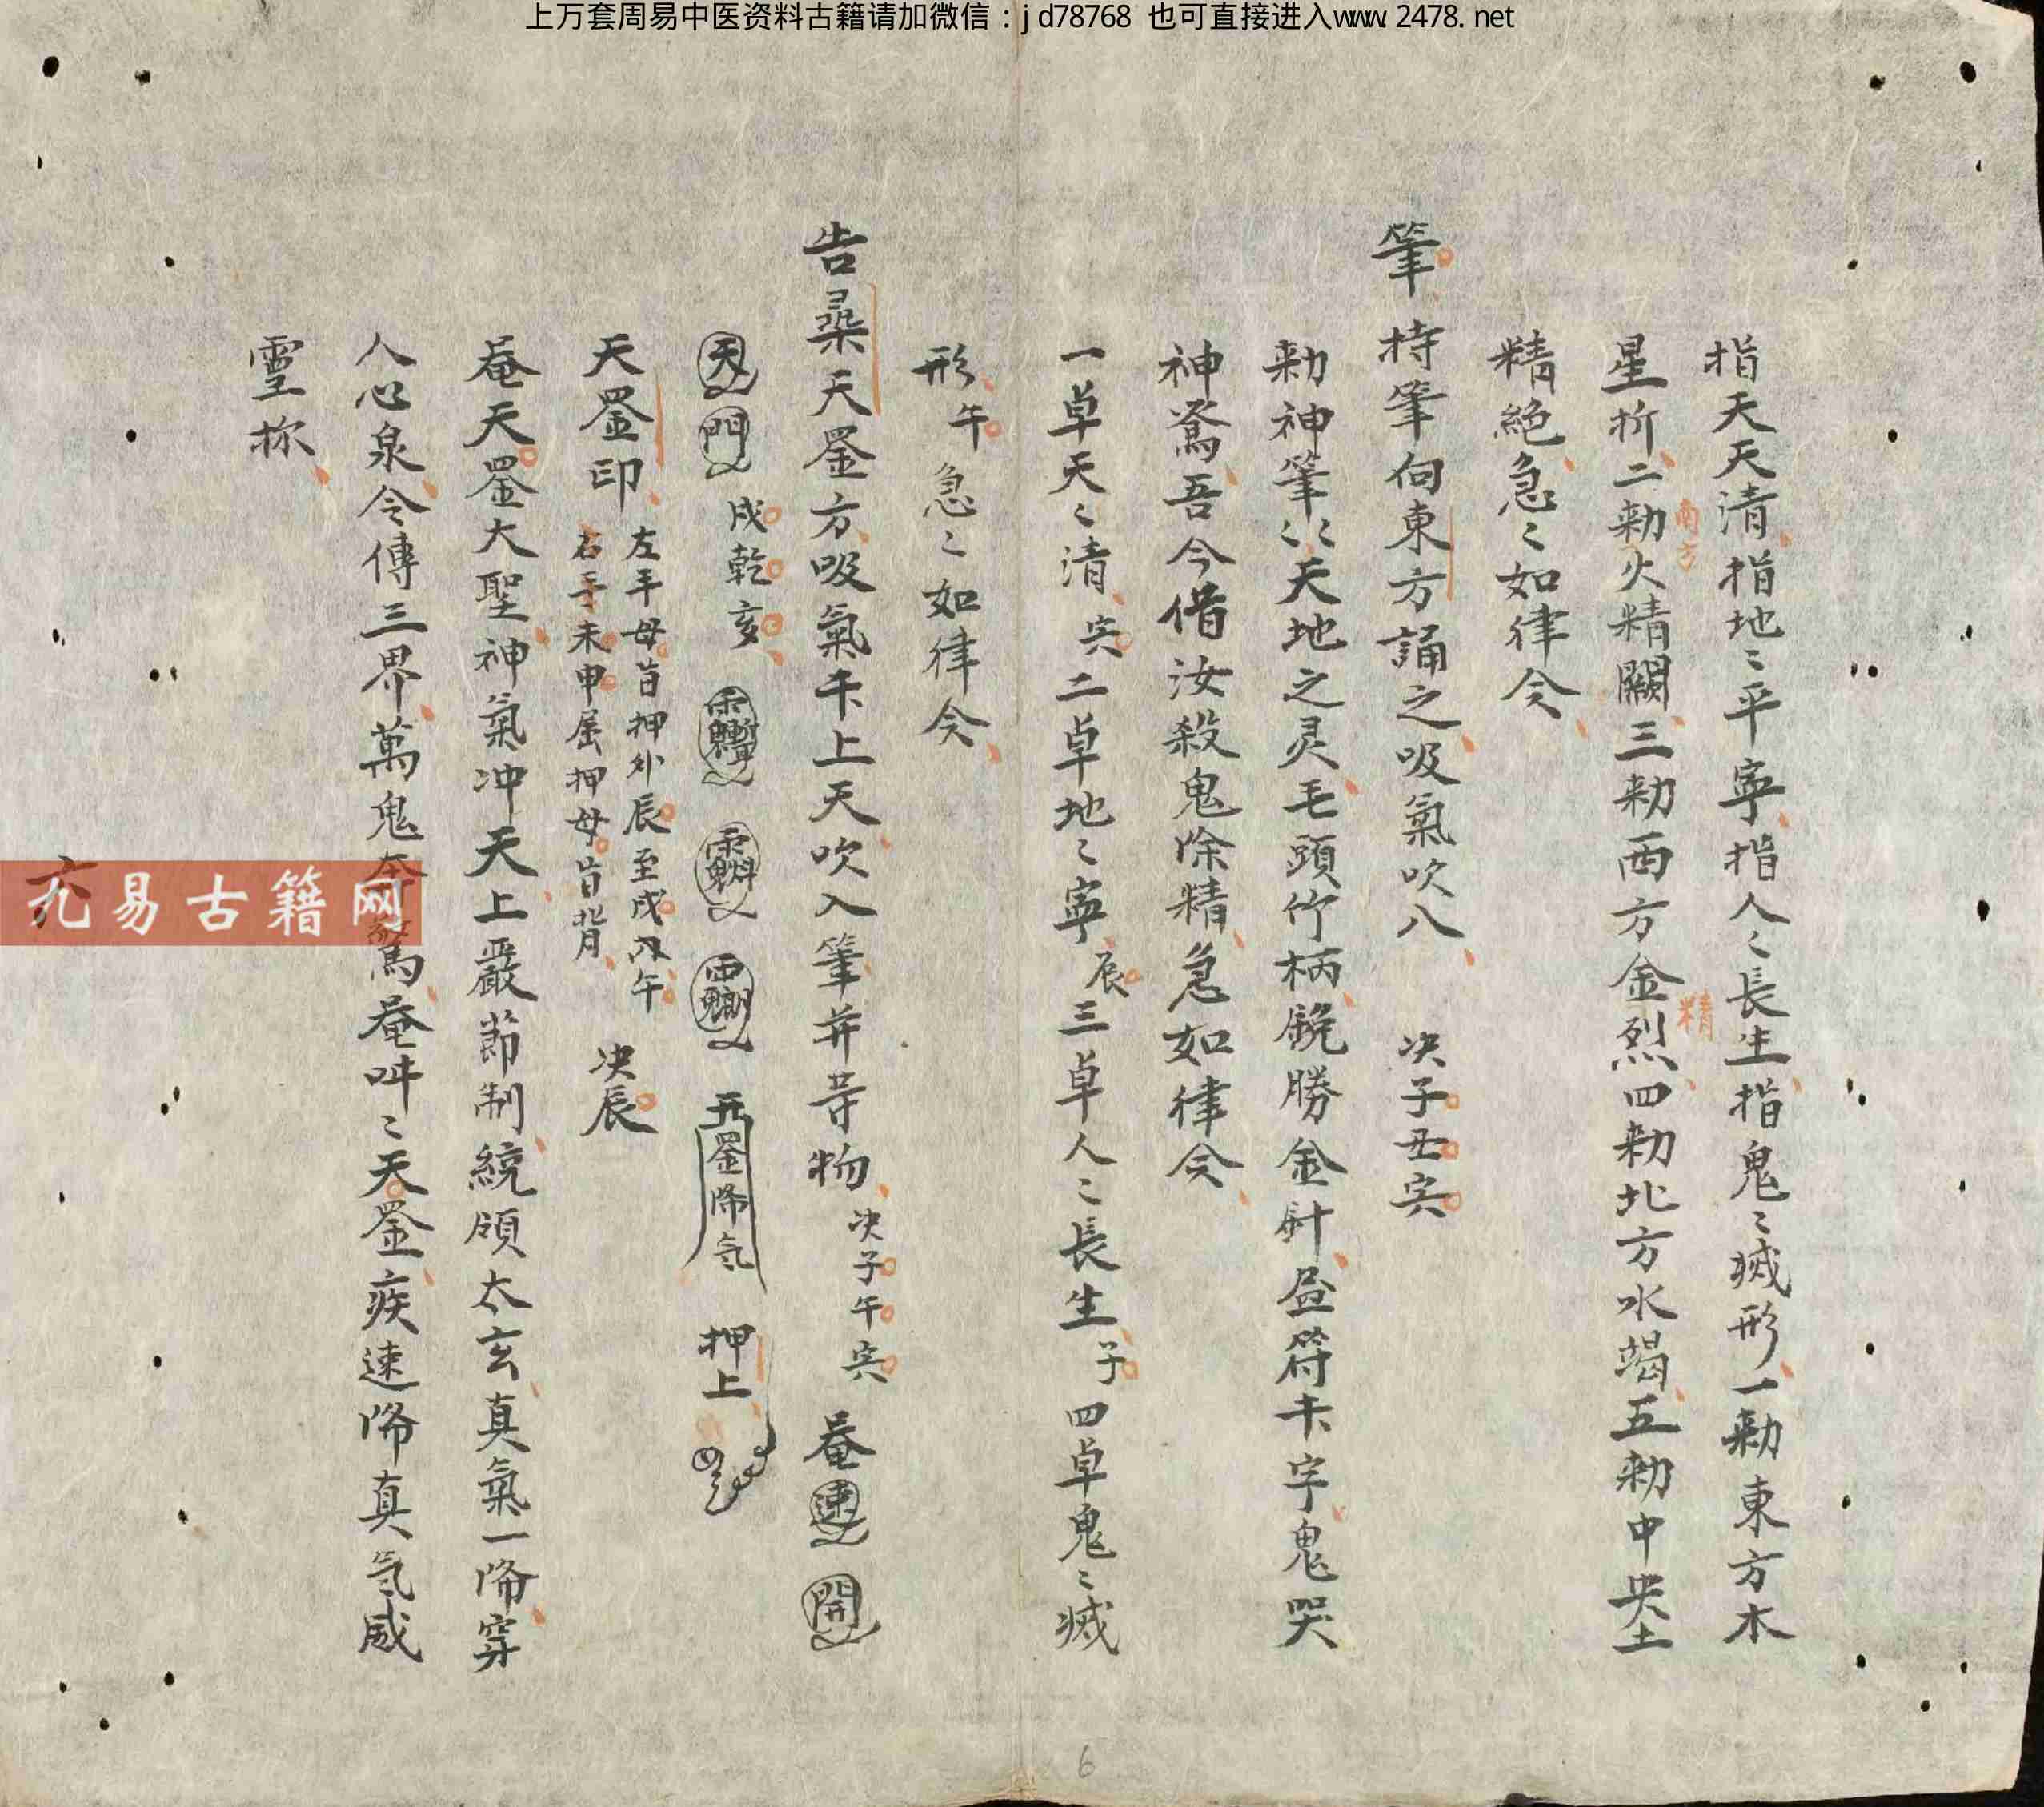 上万套周易中医资料古籍请加微信：jd78768 也可直接进入www.2478.net
指天天清指地〻平寧指人〻長生指鬼〻滅形一勑東方木
星折二勑火精闕三勑西方金烈四勑北方水竭五勑中央土
南方
精
精絕急〻如律令
筆 持筆向東方誦之吸氣吹八 决子丑寅
勑神筆〻〻天地之灵毛頭竹柄銳勝金針畫符下字鬼哭
神驚吾今借汝殺鬼除精急如律令
一卓天〻清寅二卓地〻寧辰三卓人〻長生子四卓鬼〻滅
形午急〻如律令
告 天罡方吸氣 上天吹入筆并等物 决子午寅 唵 速 開
天 門 戌乾亥 罡降气 押上
天罡印 左手母旨押外辰至戌 午
右手未申屈押母旨背 决辰
唵天罡大聖神氣冲天上嚴節制統領太玄真氣一降穿
人心泉令傳三界萬鬼奔驚唵吽〻天罡疾速降真气威
靈
六
九易古籍网
6